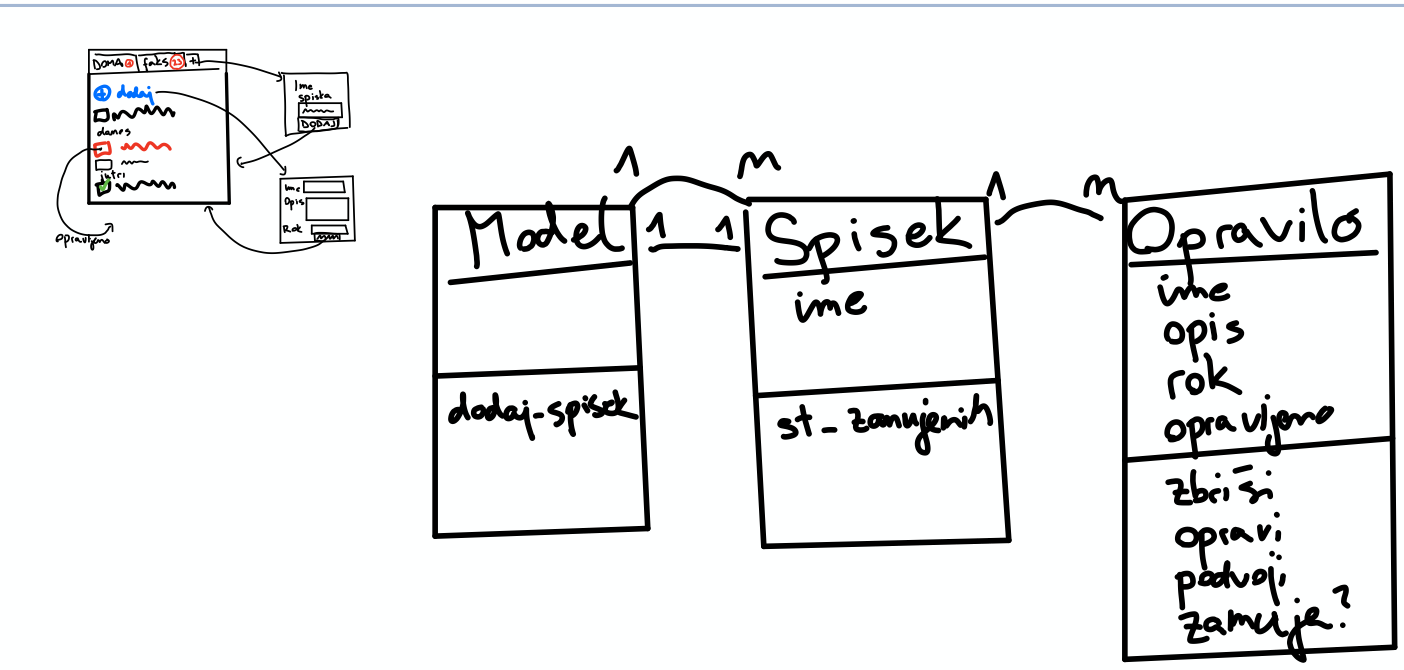 DOMA faks 23 +
+ dodaj
danes
jutri
opravljeno
Ime
spiska
DODAJ
Ime
Opis
Rok
1 m
1 1
1 m
Model
dodaj_spisek
Spisek
ime
st_zamujenih
Opravilo
ime
opis
rok
opravljeno
zbriši
opravi
podvoji
zamuja?